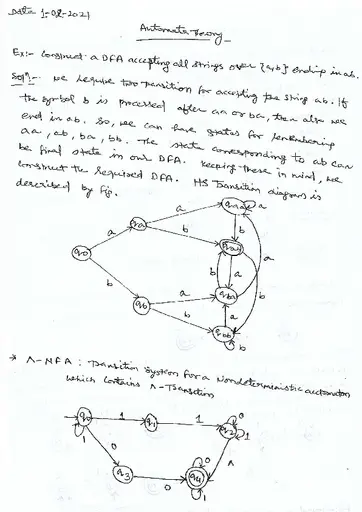 Date 1-02-2021
Automata Theory
Ex:- Construct a DFA accepting all strings over {a,b} ending in ab.
Soln:- We require two transition for accepting the string ab. If
the symbol b is processed after aa or ba, then also we
end in ab. So, we can have states for remembering
aa, ab, ba, bb. The state corresponding to ab can
be final state in our DFA. Keeping these in mind, we
construct the required DFA. Its Transition diagram is
described by Fig.
qaa a
a
qa b
a b
qab
q0 b a a b
qba
b a
qb a
b b
qbb
b
→ Λ-NFA : Transition System for a Nondeterministic automaton
which contains Λ-Transition
q0 1 q1 1 q2 0
1 1
0 0 Λ
q3 0 q4
1